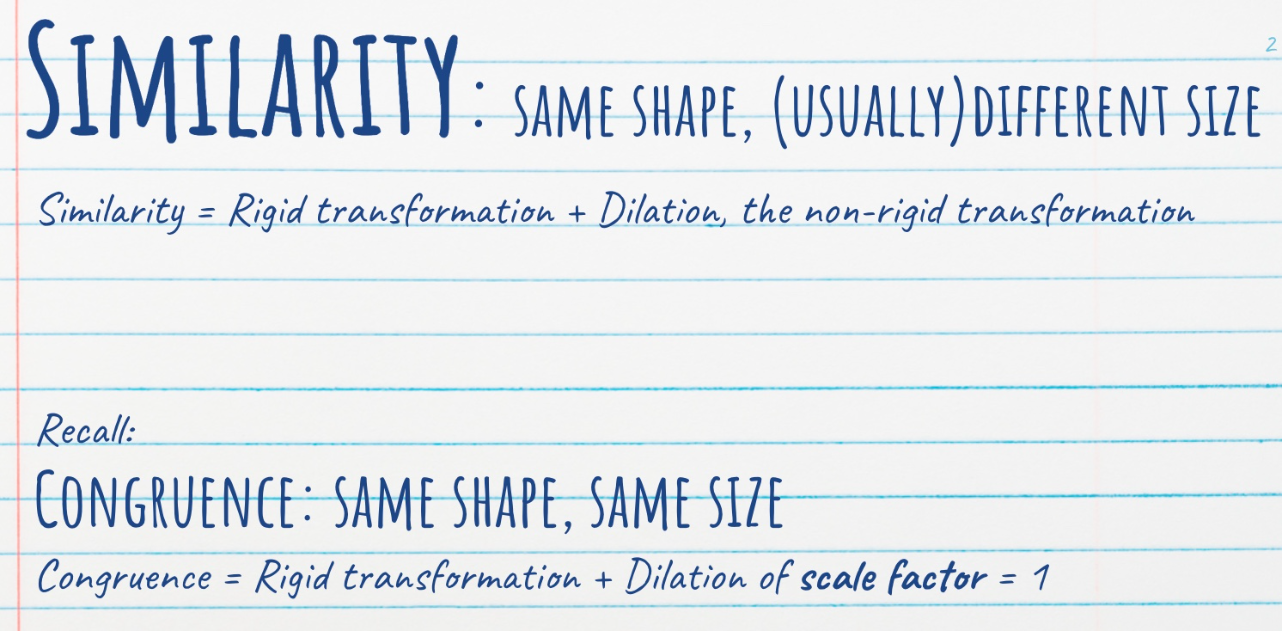 SIMILARITY: SAME SHAPE, (USUALLY)DIFFERENT SIZE
2
Similarity = Rigid transformation + Dilation, the non-rigid transformation
Recall:
CONGRUENCE: SAME SHAPE, SAME SIZE
Congruence = Rigid transformation + Dilation of scale factor = 1